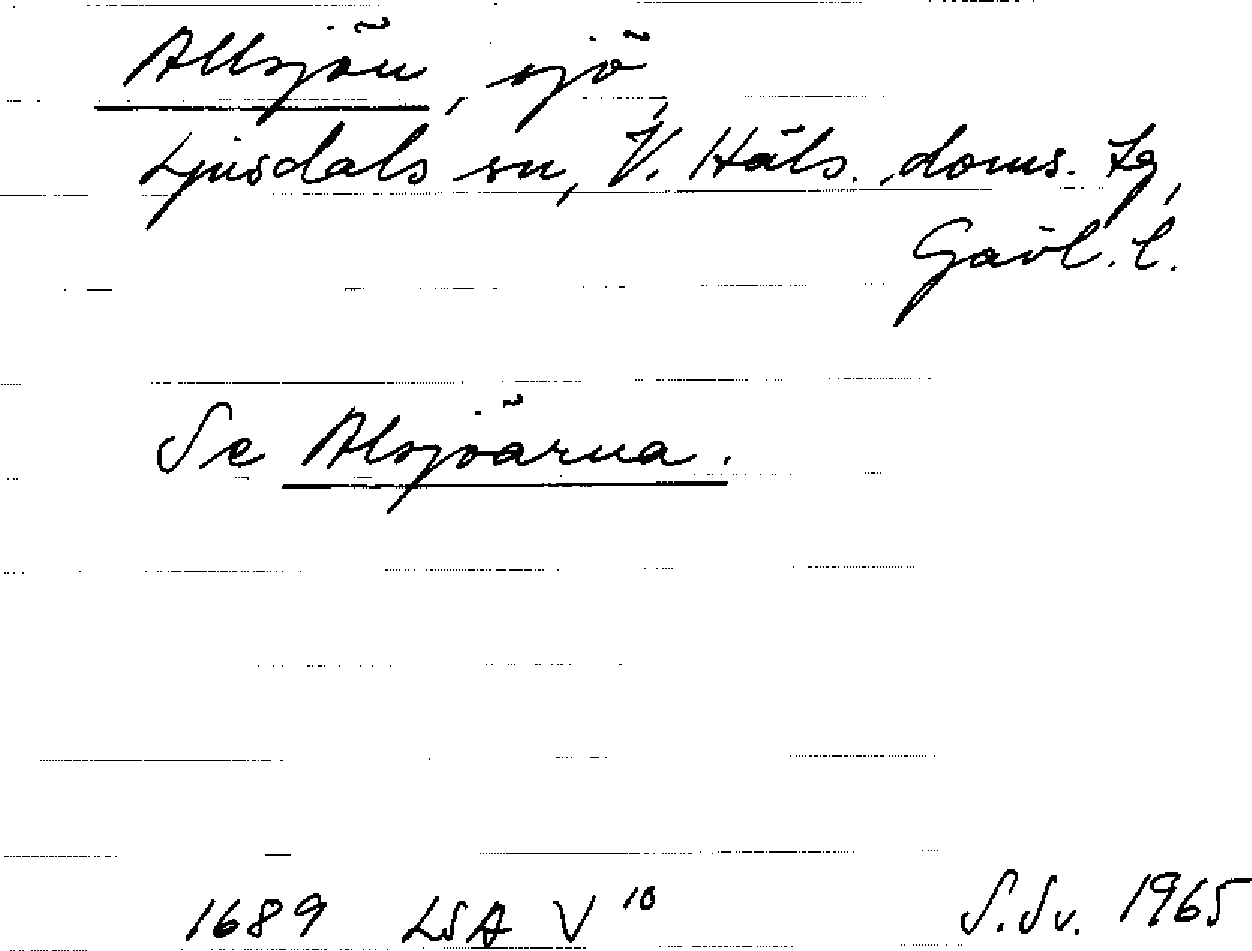 Allsjön, sjö,
Ljusdals sn, V. Häls. doms. tg,
Gävl. l.
Se Alsjöarna.
1689 LSA V 10 S.Sv. 1965